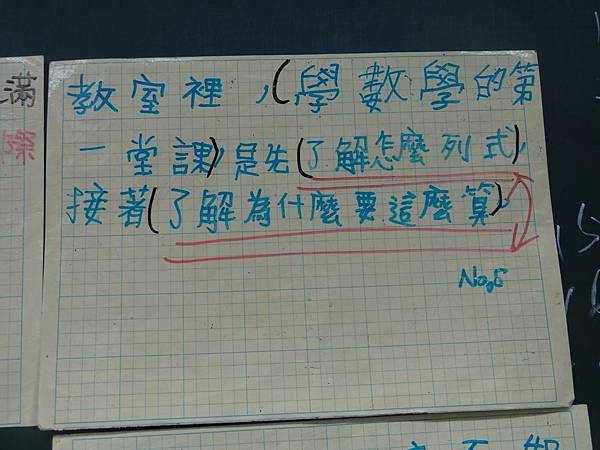 滿
際
教室裡，(學數學的第
一堂課)，是先(了解怎麼列式)，
接著(了解為什麼要這麼算)。